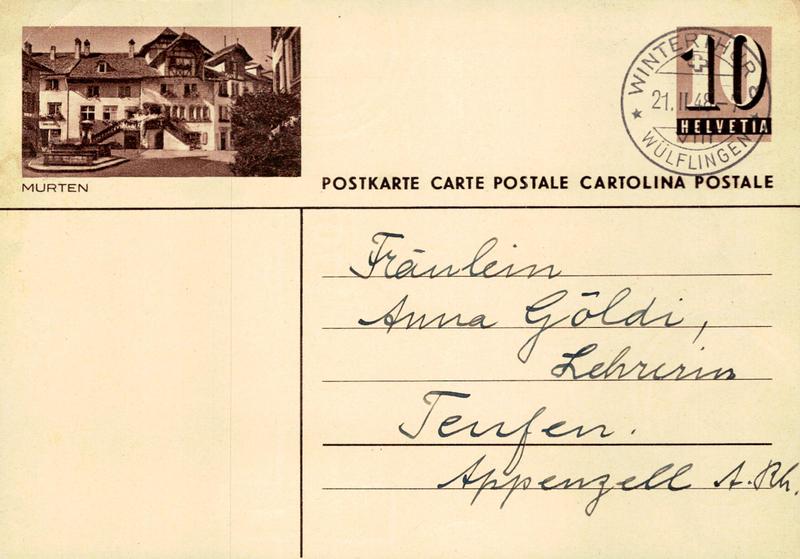 MURTEN
WINTERTHUR
21.II.48
WÜLFLINGEN
10
HELVETIA
POSTKARTE CARTE POSTALE CARTOLINA POSTALE
Fräulein
Anna Göldi,
Lehrerin
Teufen.
Appenzell A. Rh.